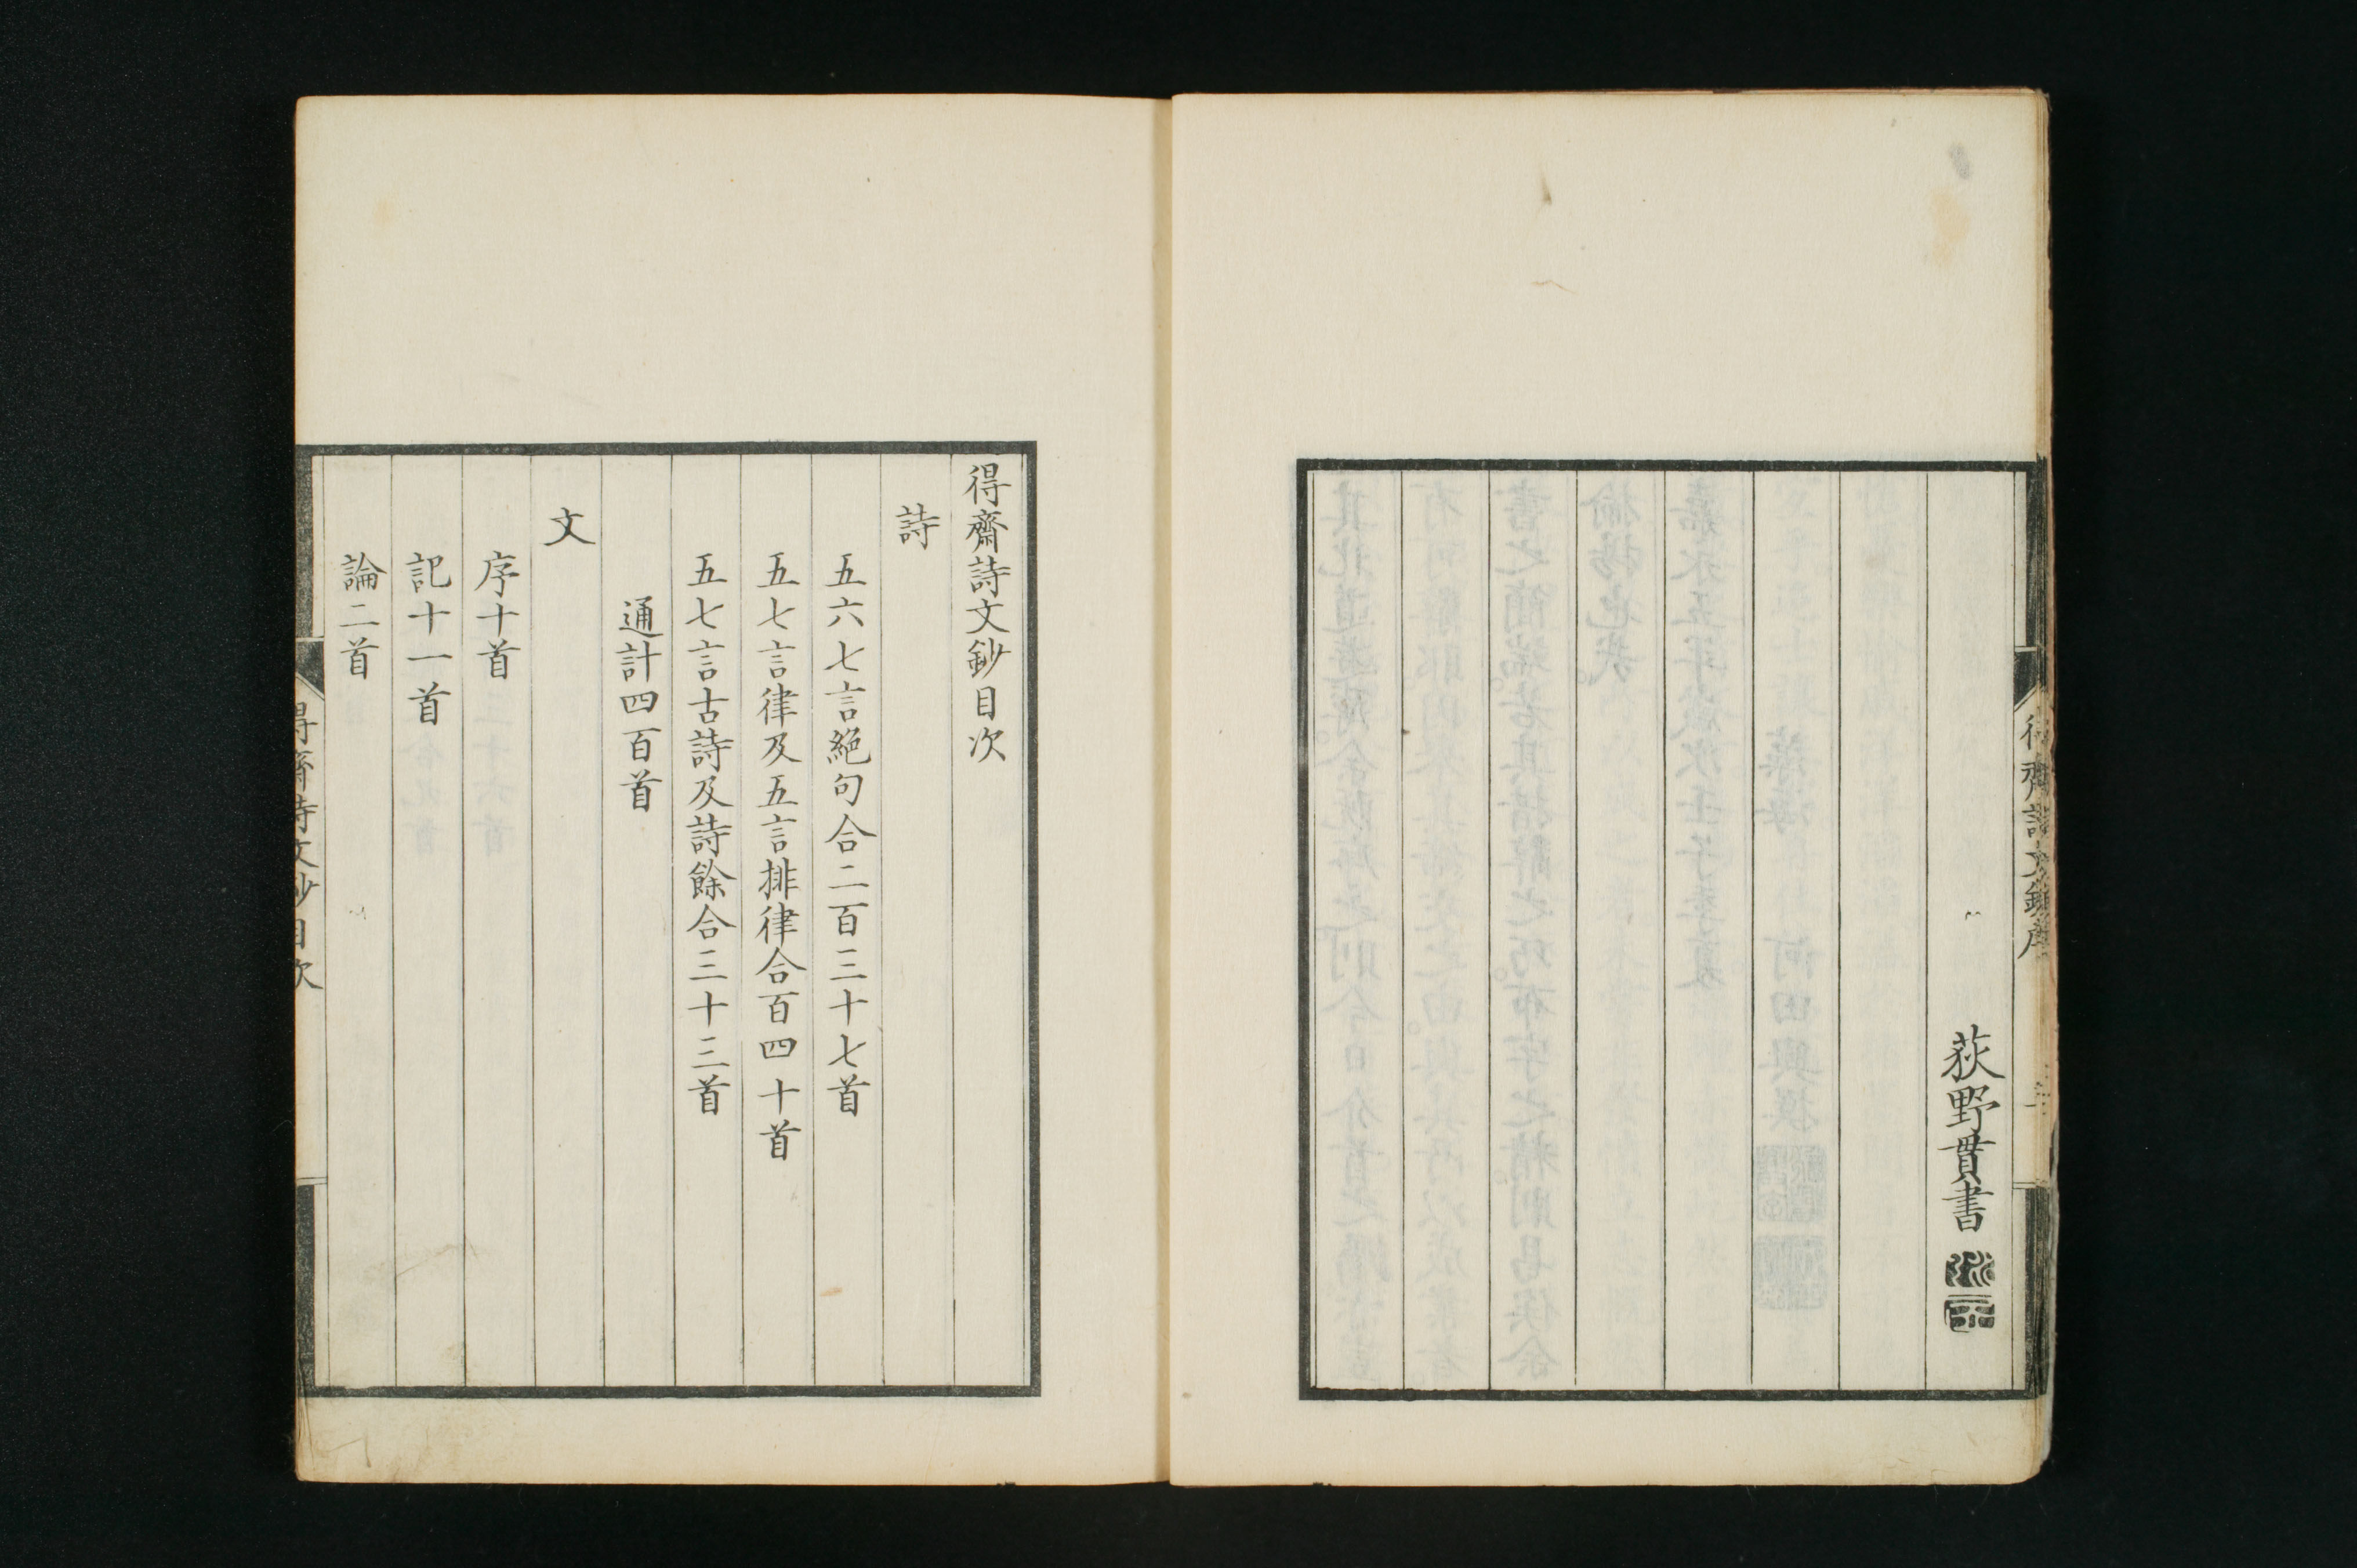 荻野貫書
得齋詩文鈔目次
詩
五六七言絕句合二百三十七首
五七言律及五言排律合百四十首
五七言古詩及詩餘合三十三首
通計四百首
文
序十首
記十一首
論二首
得齋詩文鈔目次